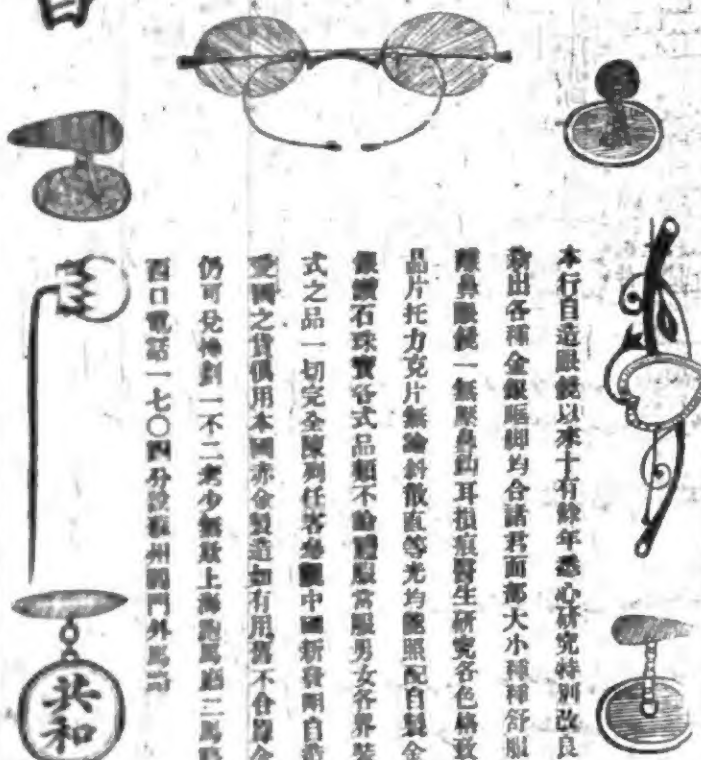 本行自造眼鏡以來十有餘年悉心研究特別改良
出各種金銀眼脚均合諸君面部大小種種舒服
鼻眼鏡一無壓鼻鈎耳損痕醫生研究各色
晶片托力克片無論斜散直等光均能照配自製金
銀鑽石珠寶各式品類不論禮服常服男女各界裝
式之品一切完全陳列任客參觀中國新發明自造
愛國之貨俱用本國赤金製造如有用舊不合算金
仍可兌換劃一不二老少無欺上海跑馬廳二馬路
西口電話一七〇四分設蘇州閶門外馬路
共和